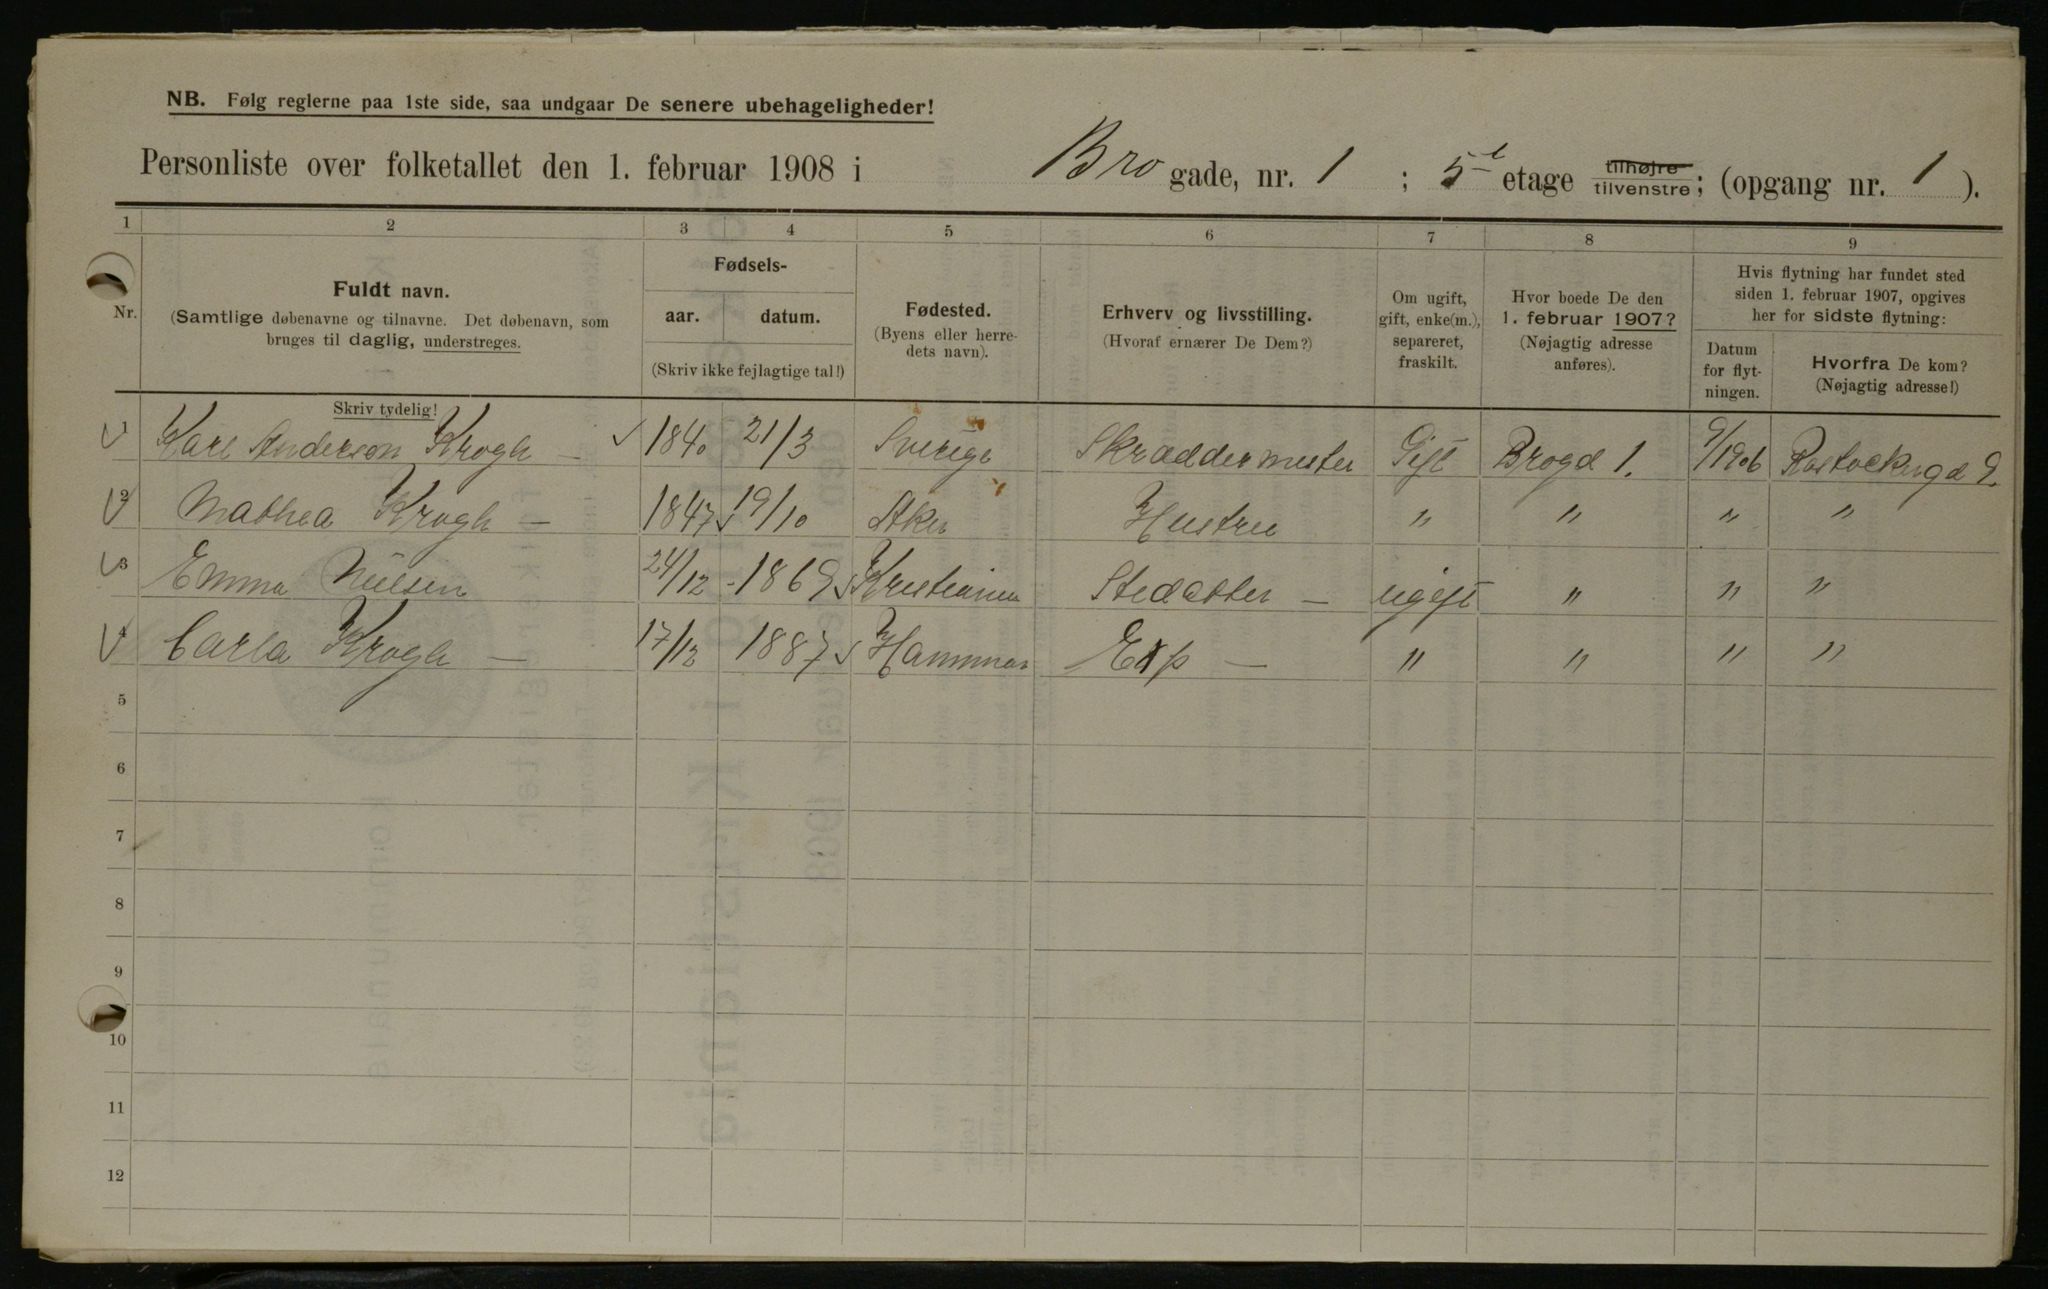 NB. Følg reglerne paa 1ste side, saa undgaar De senere ubehageligheder!
Personliste over folketallet den 1. februar 1908 i Bro gade, nr. 1 ; 5 etage tilhøjre tilvenstre; (opgang nr. 1 ).
1 2 3 4 5 6 7 8 9
Nr.
Fuldt navn.
(Samtlige døbenavne og tilnavne. Det døbenavn, som
bruges til daglig, understreges.
Skriv tydelig!
Fødsels-
aar. datum.
(Skriv ikke fejlagtige tal!)
Fødested.
(Byens eller herre-
dets navn).
Erhverv og livsstilling.
(Hvoraf ernærer De Dem?)
Om ugift,
gift, enke(m.),
separeret,
fraskilt.
Hvor boede De den
1. februar 1907?
(Nøjagtig adresse
anføres).
Hvis flytning har fundet sted
siden 1. februar 1907, opgives
her for sidste flytning:
Datum
for flyt-
ningen.
Hvorfra De kom?
(Nøjagtig adresse!)
1 Karl Anderson Krogh – 1840 21/3 Sverige Skræddermester Gift Brogd 1. 9/1906 Rostockergd 9.
2 Mathea Krogh – 1847 19/10 Aker Hustru " " " "
3 Emma Nielsen 24/12 - 1869 Kristiania Steddatter – ugift " " "
4 Carla Krogh – 17/12 1887 Hammar Exp – " " " "
5
6
7
8
9
10
11
12